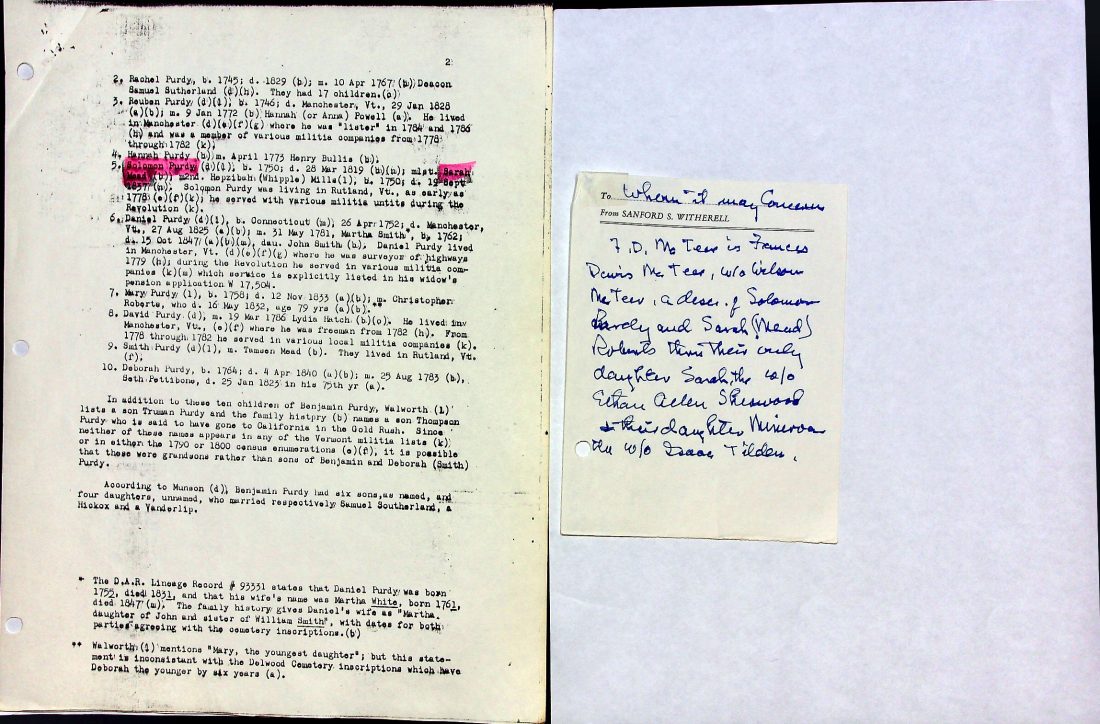 2
2. Rachel Purdy, b. 1745; d. 1829 (b); m. 10 Apr 1767 (b) Deacon
Samuel Sutherland (d)(h). They had 17 children.(c)
3. Reuben Purdy (d)(l); b. 1746; d. Manchester, Vt., 29 Jan 1828
(a)(b); m. 9 Jan 1772 (b) Hannah (or Anna) Powell (a). He lived
in Manchester (d)(e)(f)(g) where he was "lister" in 1784 and 1786
(h) and was a member of various militia companies from 1778
through 1782 (k).
4. Hannah Purdy (b) m. April 1773 Henry Bullis (b).
5. Solomon Purdy (d)(l); b. 1750; d. 28 Mar 1819 (b)(n); m1st. Sarah
Mead (b); m2nd. Hepzibah (Whipple) Mills(l), b. 1750; d. 19 Sept
1837(n). Solomon Purdy was living in Rutland, Vt., as early as
1778 (e)(f)(k); he served with various militia untits during the
Revolution (k).
6. Daniel Purdy (d)(l), b. Connecticut (m); 26 Apr 1752; d. Manchester,
Vt., 27 Aug 1825 (a)(b); m. 31 May 1781, Martha Smith*, b. 1762;
d. 15 Oct 1847 (a)(b)(m), dau. John Smith (h). Daniel Purdy lived
in Manchester, Vt. (d)(e)(f)(g) where he was surveyor of highways
1779 (h); during the Revolution he served in various militia com-
panies (k)(m) which service is explicitly listed in his widow's
pension application W 17,504.
7. Mary Purdy (l), b. 1758; d. 12 Nov 1833 (a)(b);** m. Christopher
Roberts, who d. 16 May 1832, age 79 yrs (a)(b).
8. David Purdy (d), m. 19 Mar 1786 Lydia Hatch (b)(o). He lived in
Manchester, Vt., (e)(f) where he was freeman from 1782 (h). From
1778 through 1782 he served in various local militia companies (k).
9. Smith Purdy (d)(l), m. Tamsen Mead (b). They lived in Rutland, Vt.
(f).
10. Deborah Purdy, b. 1764; d. 4 Apr 1840 (a)(b); m. 25 Aug 1783 (b),
Seth Pettibone, d. 25 Jan 1823 in his 75th yr (a).
In addition to these ten children of Benjamin Purdy, Walworth (l)
lists a son Truman Purdy and the family histpry (b) names a son Thompson
Purdy who is said to have gone to California in the Gold Rush. Since
neither of these names appears in any of the Vermont militia lists (k)
or in either the 1790 or 1800 census enumerations (e)(f), it is possible
that these were grandsons rather than sons of Benjamin and Deborah (Smith)
Purdy.
According to Munson (d), Benjamin Purdy had six sons,as named, and
four daughters, unnamed, who married respectively Samuel Southerland, a
Hickox and a Vanderlip.
* The D.A.R. Lineage Record # 93331 states that Daniel Purdy was born
1755, died 1831, and that his wife's name was Martha White, born 1761,
died 1847 (m). The family history gives Daniel's wife as "Martha.
daughter of John and sister of William Smith", with dates for both
parties agreeing with the cemetery inscriptions.(b)
** Walworth (l) mentions "Mary, the youngest daughter"; but this state-
ment is inconsistent with the Delwood Cemetery inscriptions which have
Deborah the younger by six years (a).
To Whom it may Concern
From SANFORD S. WITHERELL
F.D. McTeer is Frances
Davis McTeer, w/o Wilson
McTeer, a desc. of Solomon
Purdy and Sarah (Mead)
Roberts thru their only
daughter Sarah, the w/o
Ethan Allen Sherwood
& their daughter Minerva
the w/o Isaac Tilden.